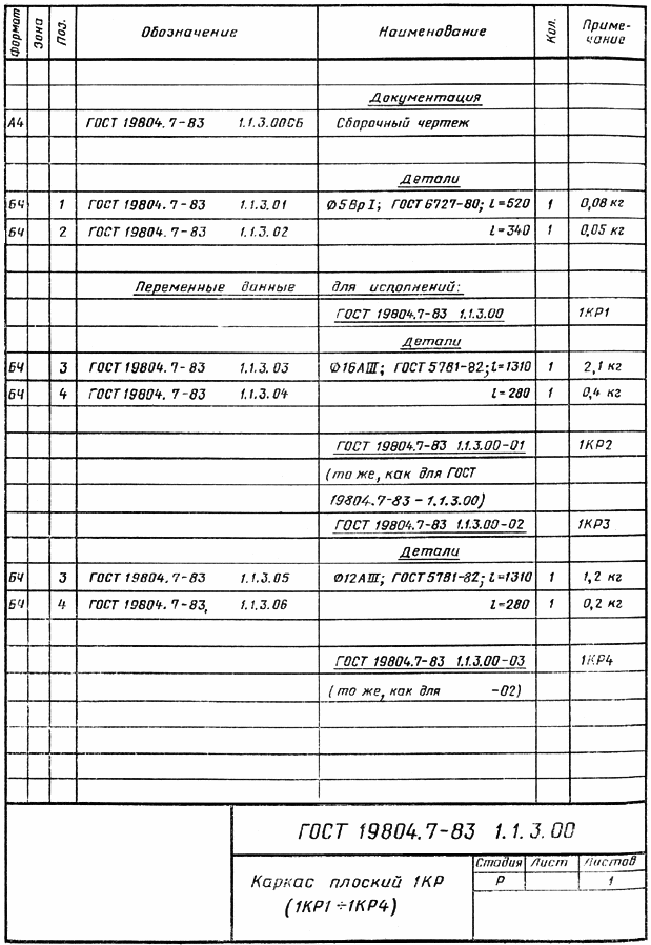 Формат Зона Поз. Обозначение Наименование Кол. Приме-
чание
Документация
А4 ГОСТ 19804.7-83 1.1.3.00СБ Сборочный чертеж
Детали
БЧ 1 ГОСТ 19804.7-83 1.1.3.01 Ф5ВрI; ГОСТ 6727-80; l=520 1 0,08 кг
БЧ 2 ГОСТ 19804.7-83 1.1.3.02 l=340 1 0,05 кг
Переменные данные для исполнений:
ГОСТ 19804.7-83 1.1.3.00 1КР1
Детали
БЧ 3 ГОСТ 19804.7-83 1.1.3.03 Ф16АIII; ГОСТ 5781-82; l=1310 1 2,1 кг
БЧ 4 ГОСТ 19804.7-83 1.1.3.04 l=280 1 0,4 кг
ГОСТ 19804.7-83 1.1.3.00-01 1КР2
(то же, как для ГОСТ
19804.7-83-1.1.3.00)
ГОСТ 19804.7-83 1.1.3.00-02 1КР3
Детали
БЧ 3 ГОСТ 19804.7-83 1.1.3.05 Ф12АIII; ГОСТ 5781-82; l=1310 1 1,2 кг
БЧ 4 ГОСТ 19804.7-83, 1.1.3.06 l=280 1 0,2 кг
ГОСТ 19804.7-83 1.1.3.00-03 1КР4
(то же, как для -02)
ГОСТ 19804.7-83 1.1.3.00
Каркас плоский 1КР
(1КР1÷1КР4)
Стадия Лист Листов
Р 1